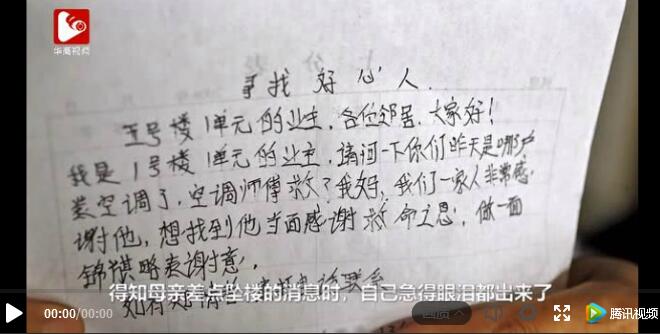 华商视频
寻找好心人
1号楼1单元的业主,各位邻居,大家好!
我是1号楼1单元的业主,请问一下你们昨天是哪户
装空调了,空调师傅救了我妈,我们一家人非常感
谢他,想找到他当面感谢救命之恩,做一面
锦旗略表谢意,
如有知情
得知母亲差点坠楼的消息时,自己急得眼泪都出来了
00:00/00:00
腾讯视频